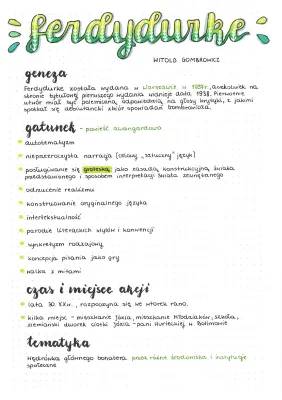 ferdydurke
WITOLD GOMBROWICZ
geneza
Ferdydurke została wydana w Warszawie w 1937r., aczkolwiek na
stronie tytułowej pierwszego wydania widnieje data 1938. Pierwotnie
utwór miał być polemiczną odpowiedzią na głosy krytyki, z jakimi
spotkał się debiutancki zbiór opowiadań Gombrowicza.
gatunek - powieść awangardowa
autotematyzm
nieprzezroczysta narracja (celowy "sztuczny" język)
posługiwanie się groteską jako zasadą konstrukcyjną świata
przedstawionego i sposobem interpretacji świata zewnętrznego
odrzucenie realizmu
konstruowanie oryginalnego języka
intertekstualność
parodie literackich stylów i konwencji
synkretyzm rodzajowy
koncepcja pisania jako gry
walka z mitami
czas i miejsce akcji
lata 30. XXw., rozpoczyna się we wtorek rano.
kilka miejsc - mieszkanie Józia, mieszkanie Młodziaków, szkoła,
ziemiański dworek ciotki Józia - pani Hurleckiej w Bolimowie
tematyka
Wędrówka głównego bohatera przez różne środowiska i instytucje
społeczne